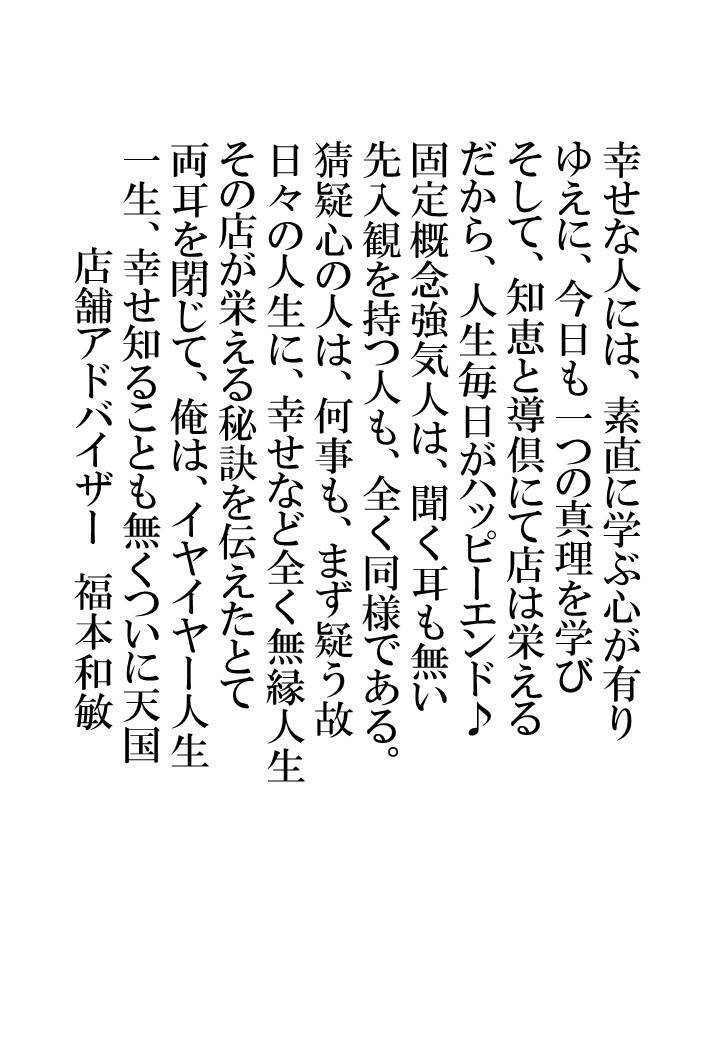 幸せな人には、素直に学ぶ心が有り
ゆえに、今日も一つの真理を学び
そして、知恵と導倶にて店は栄える
だから、人生毎日がハッピーエンド♪
固定概念強気人は、聞く耳も無い
先入観を持つ人も、全く同様である。
猜疑心の人は、何事も、まず疑う故
日々の人生に、幸せなど全く無縁人生
その店が栄える秘訣を伝えたとて
両耳を閉じて、俺は、イヤイヤー人生
一生、幸せ知ることも無くついに天国
店舗アドバイザー　福本和敏